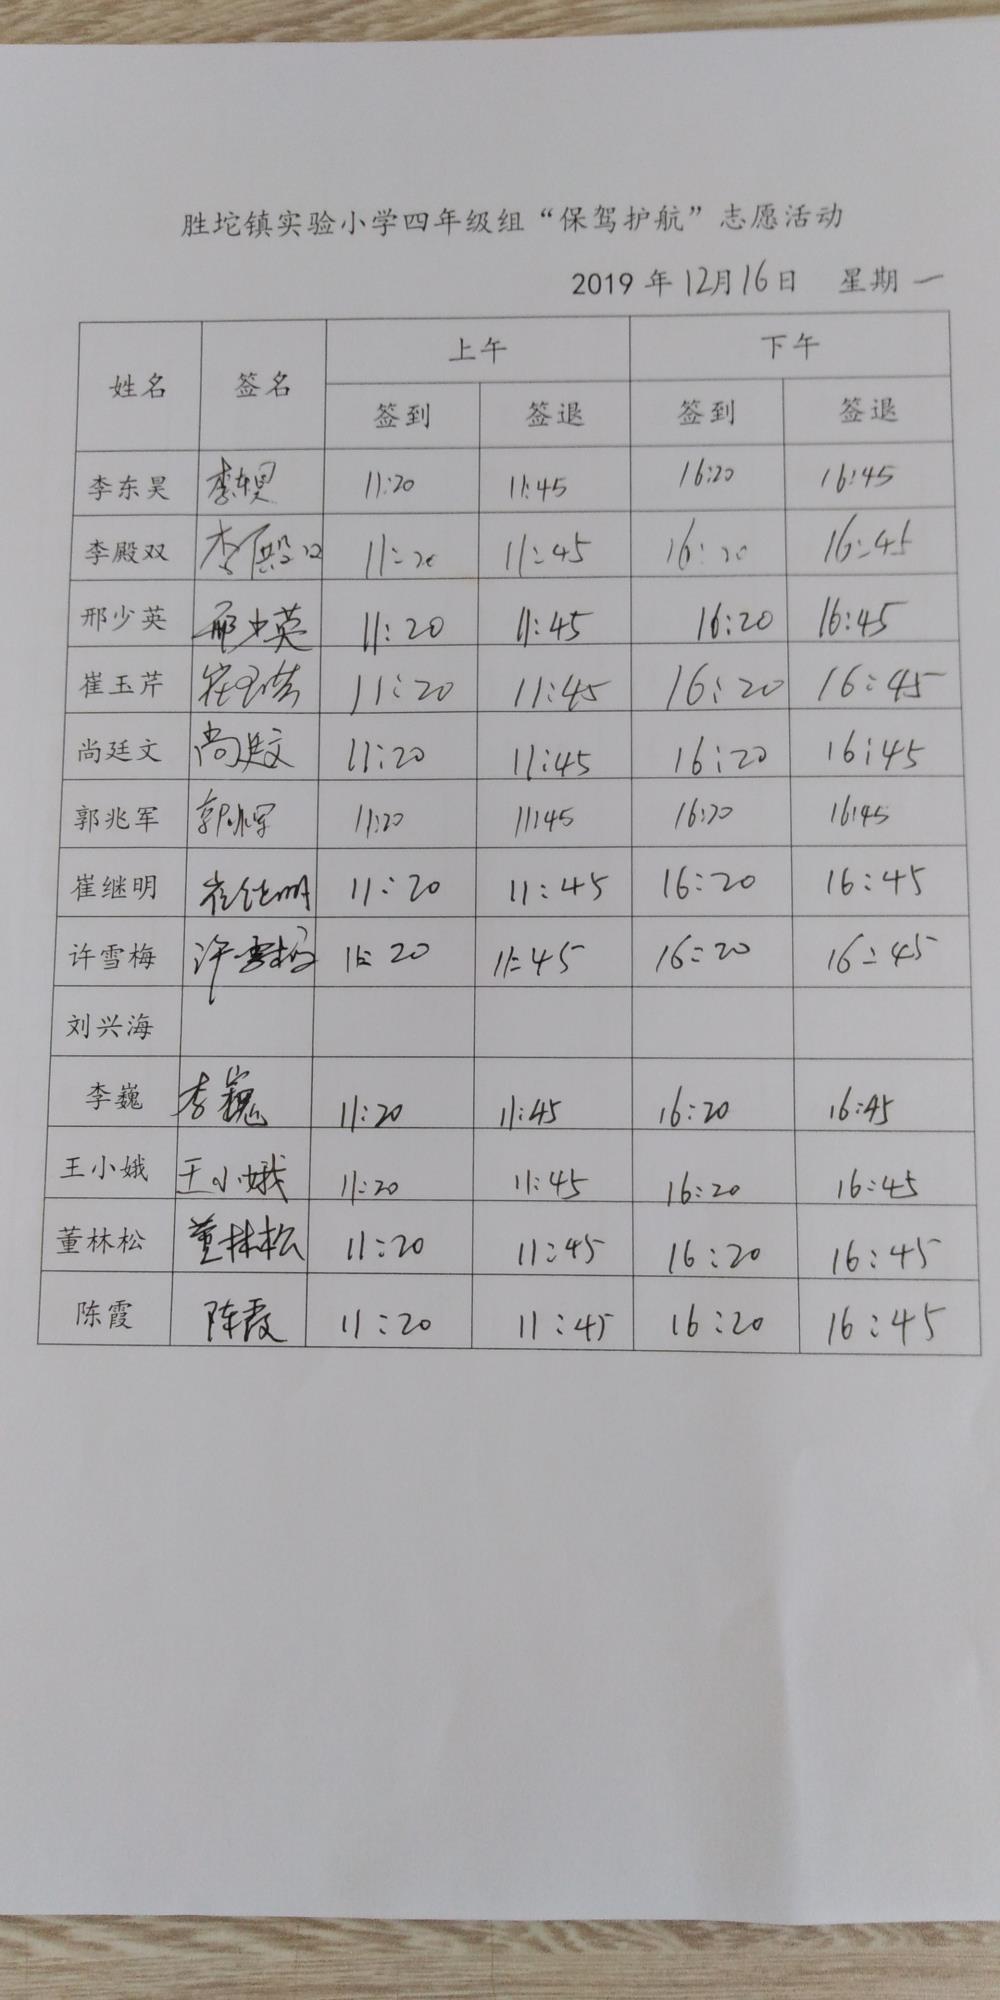 胜坨镇实验小学四年级组“保驾护航”志愿活动
2019 年 12月16日 星期一
姓名 签名 上午 下午
签到 签退 签到 签退
李东昊 李东昊 11:20 11:45 16:20 16:45
李殿双 李殿双 11:20 11:45 16:20 16:45
邢少英 邢少英 11:20 11:45 16:20 16:45
崔玉芹 崔玉芹 11:20 11:45 16:20 16:45
尚廷文 尚廷文 11:20 11:45 16:20 16:45
郭兆军 郭兆军 11:20 11:45 16:20 16:45
崔继明 崔继明 11:20 11:45 16:20 16:45
许雪梅 许雪梅 11:20 11:45 16:20 16:45
刘兴海
李巍 李巍 11:20 11:45 16:20 16:45
王小娥 王小娥 11:20 11:45 16:20 16:45
董林松 董林松 11:20 11:45 16:20 16:45
陈霞 陈霞 11:20 11:45 16:20 16:45